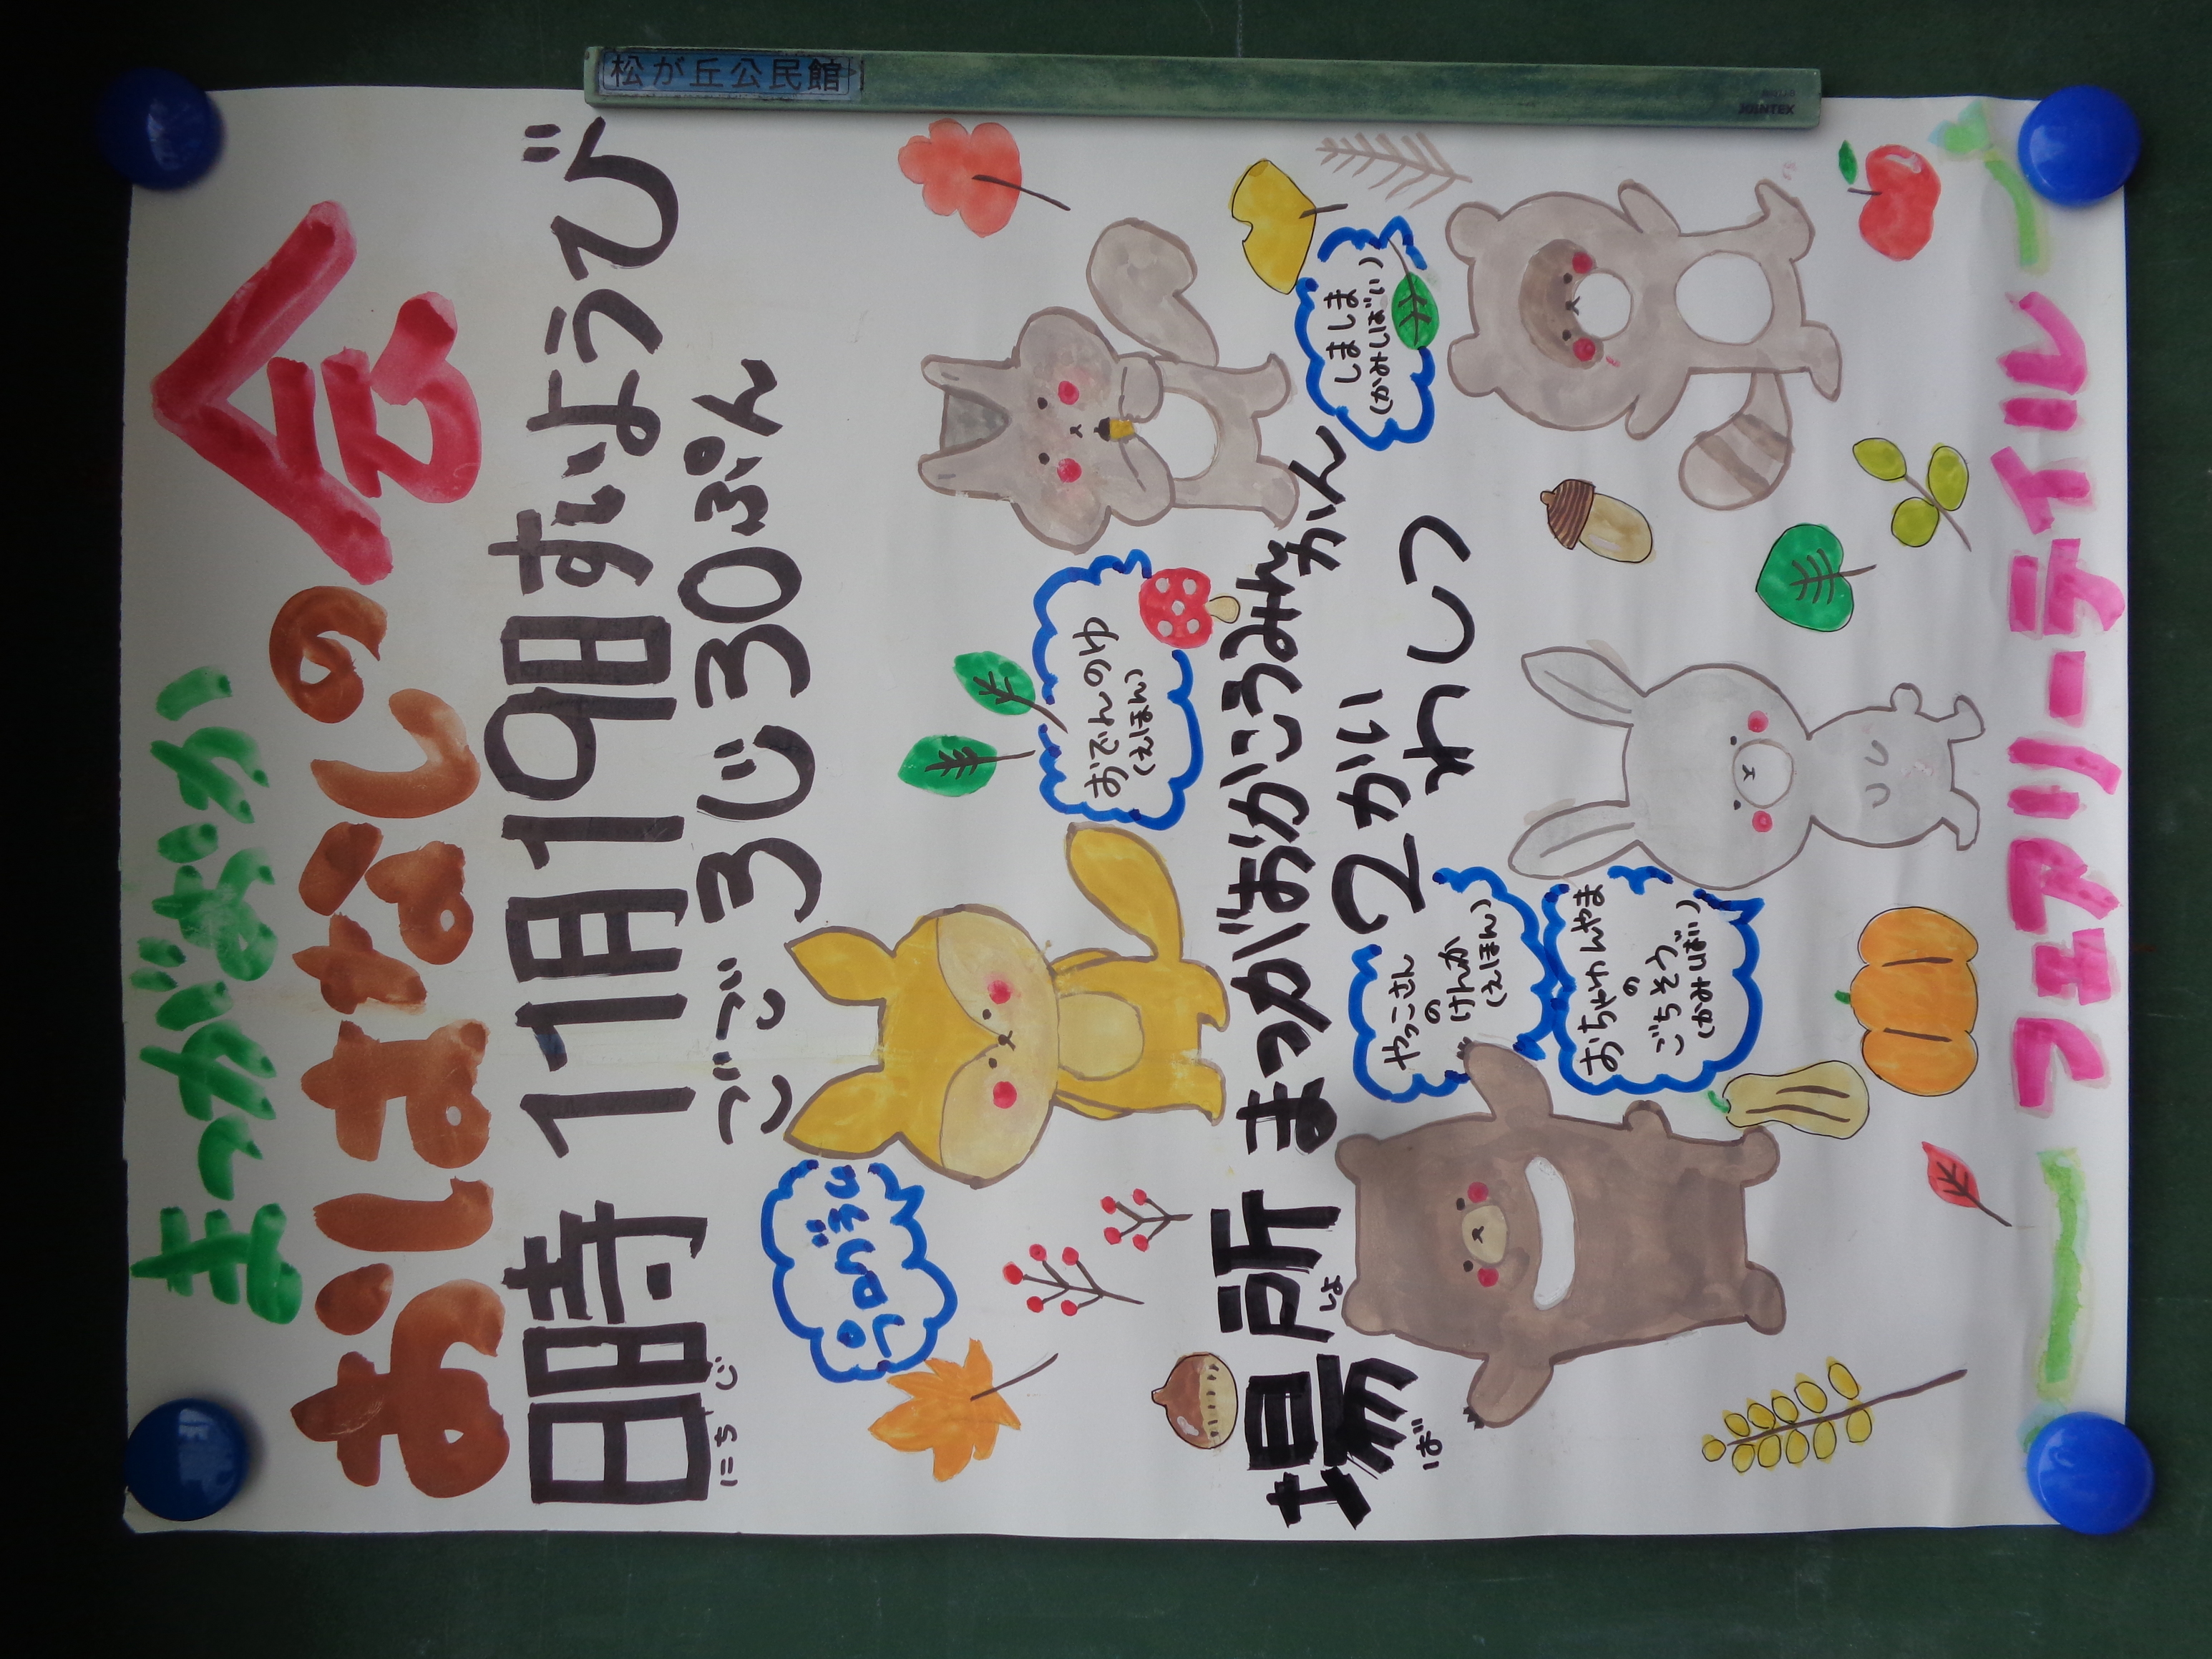 松が丘公民館
まつがおか
おはなしの会
日時 11月19日すいようび
にちじ
ごご 3じ30ぷん
おでんのゆ
(えほん)
しましま
(かみしばい)
場所 まつがおかこうみんかん
ばしょ
2かい わしつ
やっこさん
の
けんか
(えほん)
おちゃわんやま
の
ごちそう
(かみしばい)
フェアリーテイル
JOINTEX